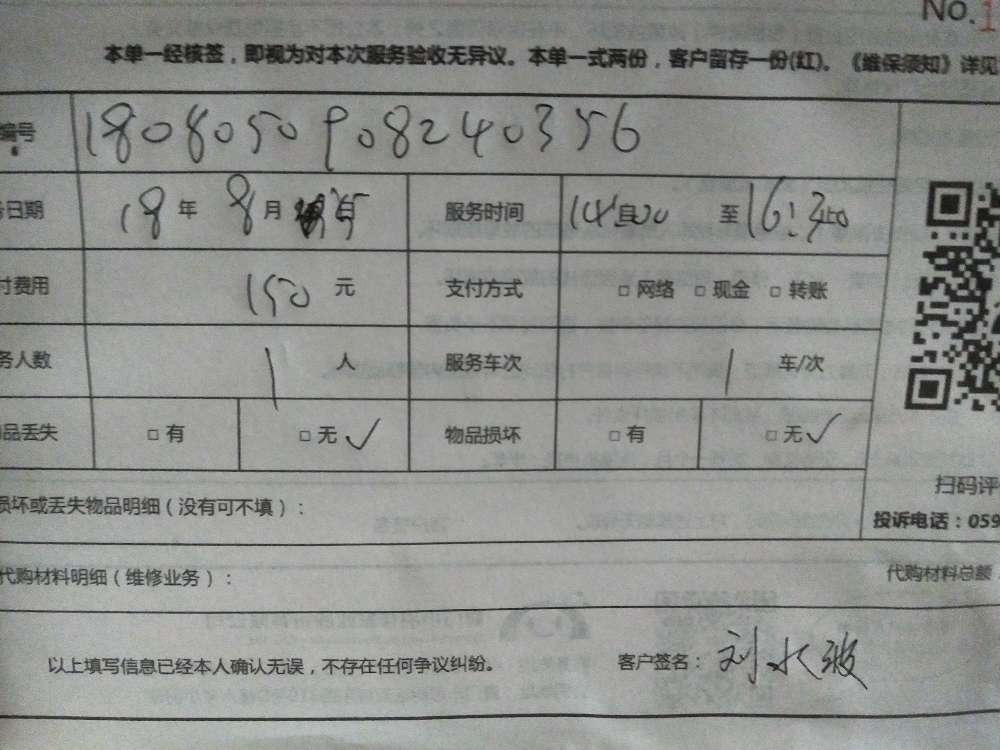 No.1
本单一经核签，即视为对本次服务验收无异议。本单一式两份，客户留存一份(红)。《维保须知》详见
编号 180805090824 0356
务日期 18 年 8 月 服务时间 至 16:
付费用 150 元 支付方式 □ 网络 □ 现金 □ 转账
务人数 1 人 服务车次 1 车/次
品丢失 □ 有 □ 无 ✓ 物品损坏 □ 有 □ 无 ✓
扫码评
损坏或丢失物品明细（没有可不填）：
投诉电话：059
代购材料明细（维修业务）： 代购材料总额
以上填写信息已经本人确认无误，不存在任何争议纠纷。 客户签名：刘水波